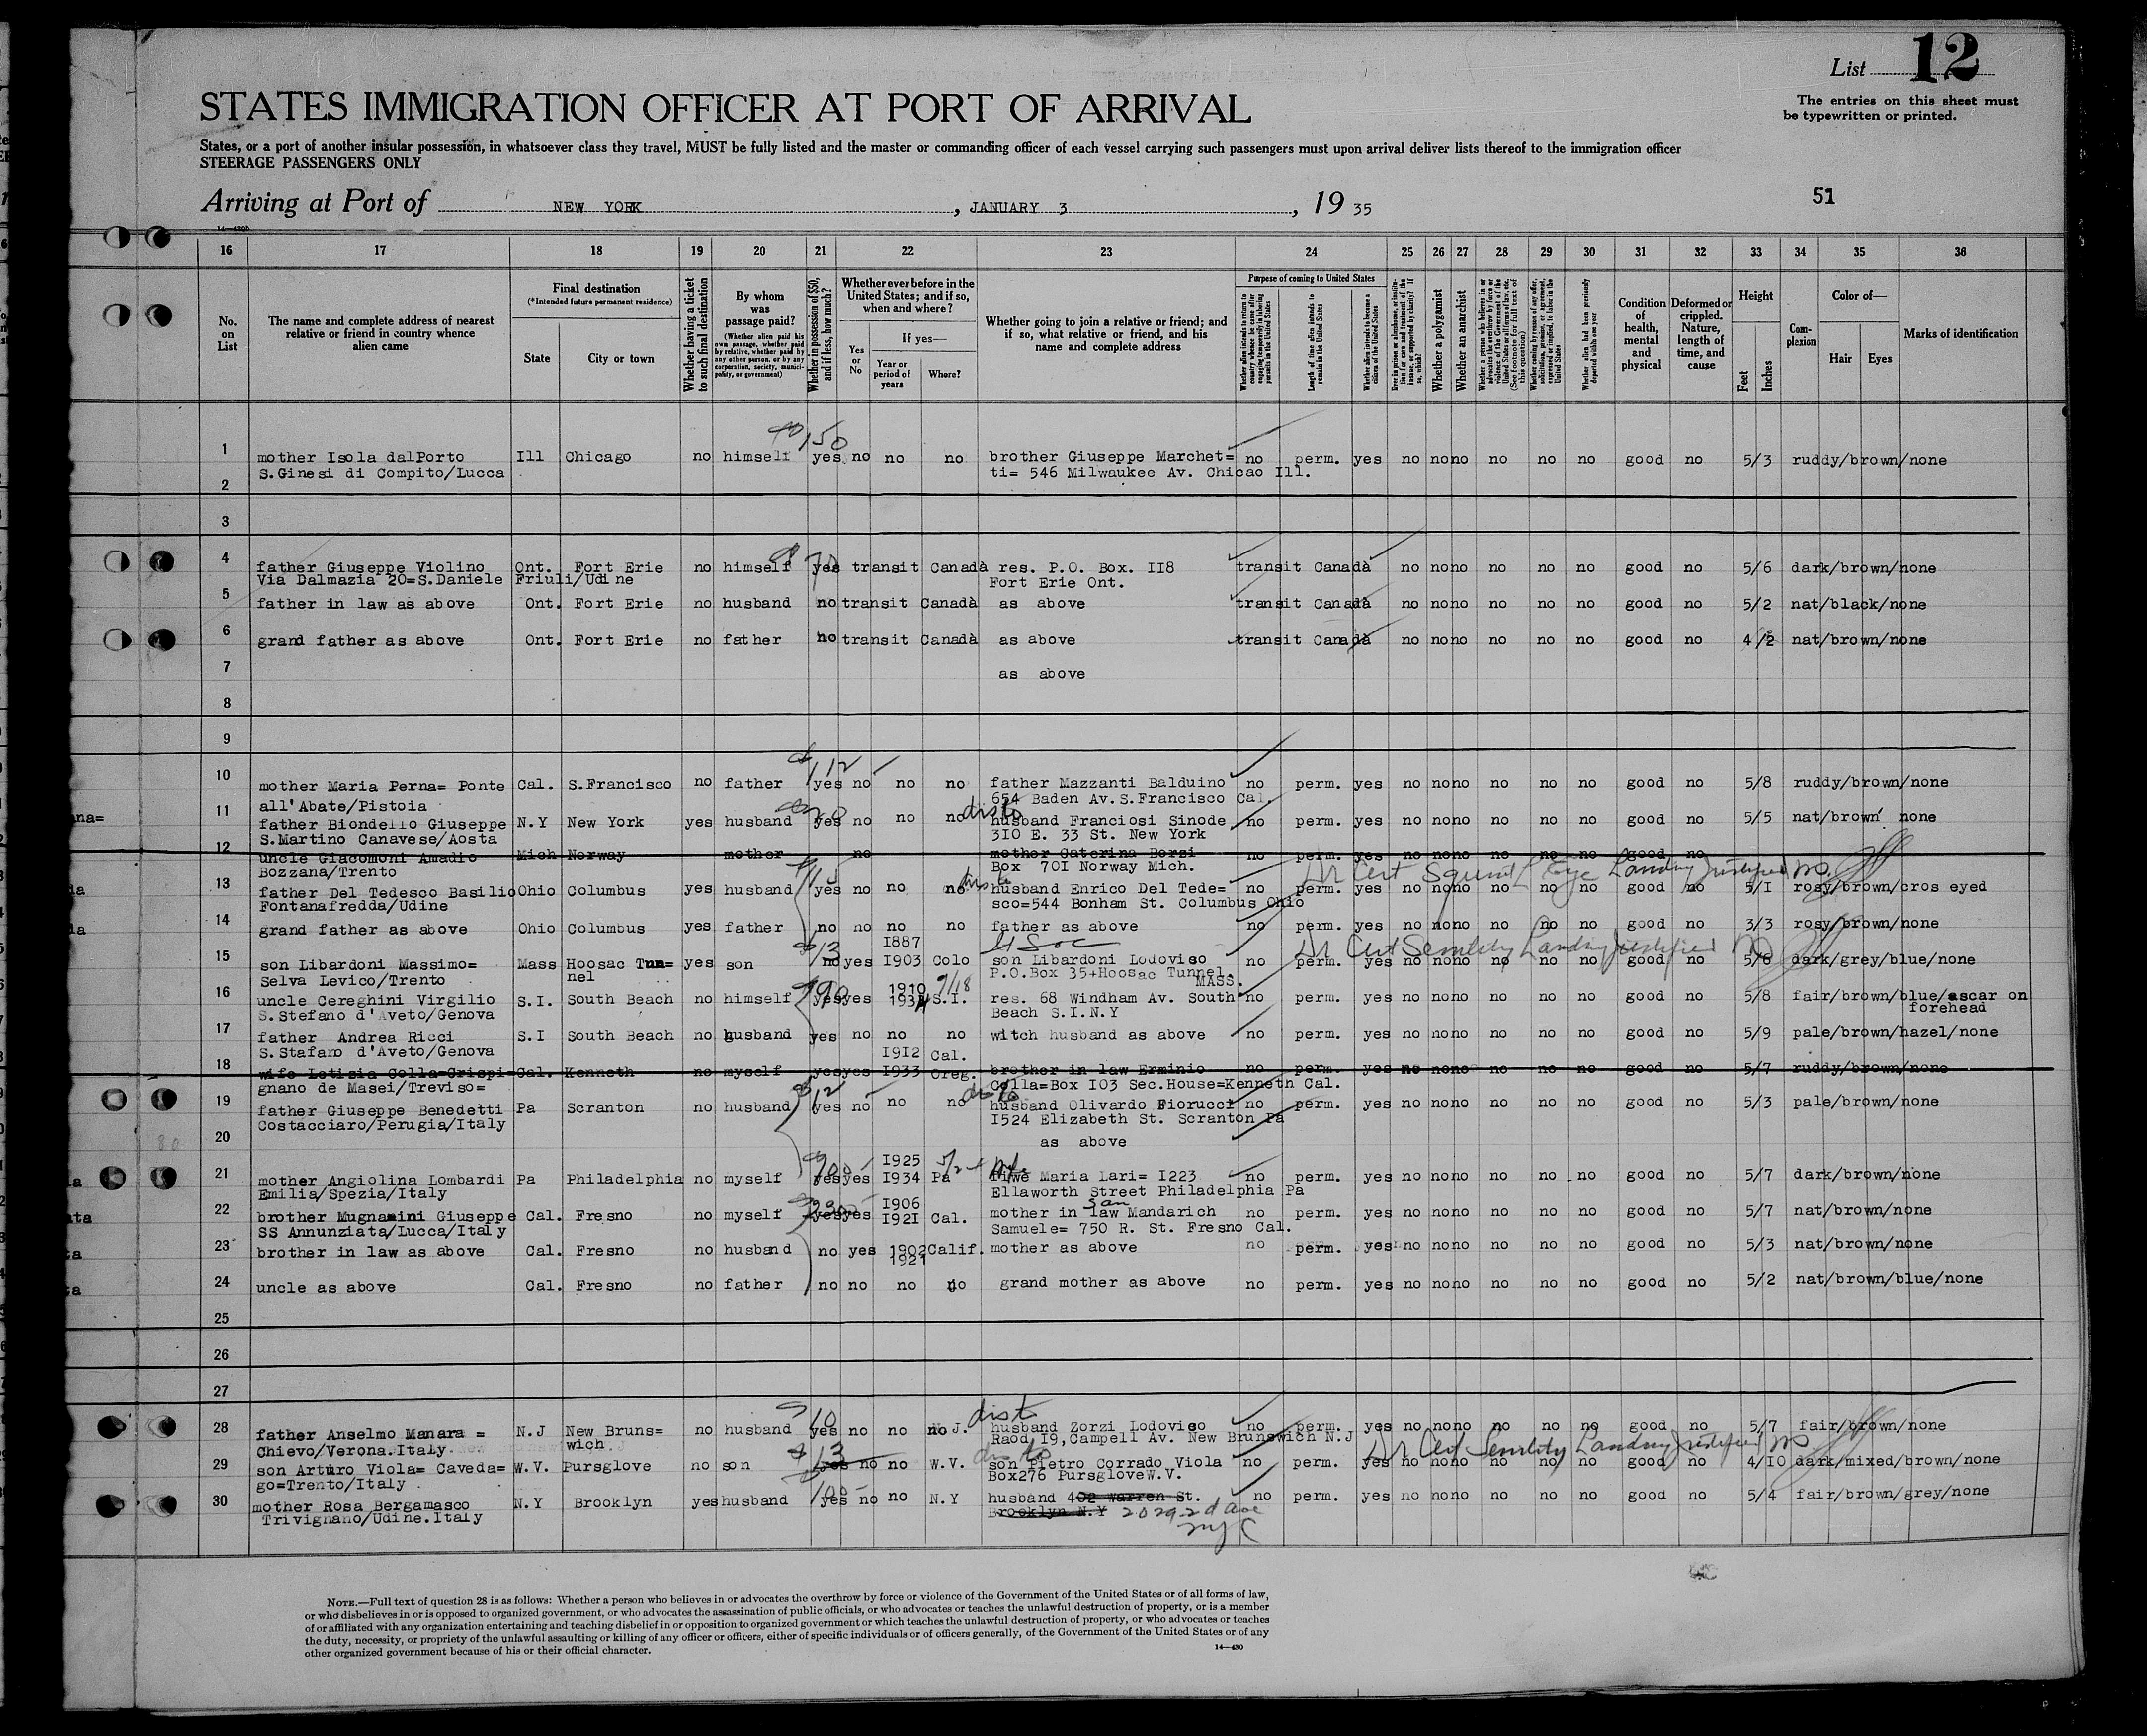 List 12
The entries on this sheet must
be typewritten or printed.
STATES IMMIGRATION OFFICER AT PORT OF ARRIVAL
States, or a port of another insular possession, in whatsoever class they travel, MUST be fully listed and the master or commanding officer of each vessel carrying such passengers must upon arrival deliver lists thereof to the immigration officer
STEERAGE PASSENGERS ONLY
51
Arriving at Port of NEW YORK, JANUARY 3, 19 35
16 17 18 19 20 21 22 23 24 25 26 27 28 29 30 31 32 33 34 35 36
No. on List
The name and complete address of nearest relative or friend in country whence alien came
Final destination
(*Intended future permanent residence)
State
City or town
Whether having a ticket to such final destination
By whom was passage paid?
(Whether alien paid his own passage, whether paid by relative, whether paid by any other person, or by any corporation, society, municipality, or government)
Whether in possession of $50, and if less, how much?
Whether ever before in the United States; and if so, when and where?
Yes or No
If yes—
Year or period of years
Where?
Whether going to join a relative or friend; and if so, what relative or friend, and his name and complete address
Purpose of coming to United States
Length of time alien intends to remain in the United States
Whether alien intends to become a citizen of the United States
Whether a polygamist
Whether an anarchist
Condition of health, mental and physical
Deformed or crippled. Nature, length of time, and cause
Height
Feet
Inches
Complexion
Color of—
Hair
Eyes
Marks of identification
$150
1 mother Isola dalPorto Ill Chicago no himself yes no no no brother Giuseppe Marchet= no perm. yes no no no no no no good no 5/3 ruddy/brown/none
S.Ginesi di Compito/Lucca ti= 546 Milwaukee Av. Chicao Ill.
2
3
4 father Giuseppe Violino Ont. Fort Erie no himself yes transit Canadà res. P.O. Box. II8 transit Canadà no no no no no no good no 5/6 dark/brown/none
Via Dalmazia 20=S.Daniele Friuli/Udine Fort Erie Ont.
5 father in law as above Ont. Fort Erie no husband no transit Canadà as above transit Canadà no no no no no no good no 5/2 nat/black/none
6 grand father as above Ont. Fort Erie no father no transit Canadà as above transit Canadà no no no no no no good no 4/2 nat/brown/none
7 as above
8
9
$112
10 mother Maria Perna= Ponte Cal. S.Francisco no father yes no no no father Mazzanti Balduino no perm. yes no no no no no no good no 5/8 ruddy/brown/none
all'Abate/Pistoia 654 Baden Av.S.Francisco Cal.
11 father Biondello Giuseppe N.Y New York yes husband yes no no no husband Franciosi Sinode no perm. yes no no no no no no good no 5/5 nat/brown none
S.Martino Canavese/Aosta 3IO E. 33 St. New York
12 uncle Giacomoni Amadio Mich Norway mother no mother Caterina Borzi no perm. yes no no no no no no good no
Bozzana/Trento Box 70I Norway Mich.
Dr Cert Squint L Eye Landing justified
13 father Del Tedesco Basilio Ohio Columbus yes husband yes no no no husband Enrico Del Tede= no perm. yes no no no no no no good no 5/I rosy/brown/cros eyed
Fontanafredda/Udine sco=544 Bonham St. Columbus Ohio
14 grand father as above Ohio Columbus yes father no no no no father as above no perm. yes no no no no no no good no 3/3 rosy/brown/none
I887
Dr Cert Senility Landing justified
15 son Libardoni Massimo= Mass Hoosac Tun= yes son no yes I903 Colo son Libardoni Lodoviso no perm. yes no no no no no no good no 5/6 dark/grey/blue/none
Selva Levico/Trento nel P.O.Box 35+Hoosac Tunnel. MASS.
1910 7/18
16 uncle Cereghini Virgilio S.I. South Beach no himself yes yes 1934 S.I. res. 68 Windham Av. South no perm. yes no no no no no no good no 5/8 fair/brown/blue/ascar on
S.Stefano d'Aveto/Genova Beach S.I.N.Y forehead
17 father Andrea Ricci S.I South Beach no husband yes no no no witch husband as above no perm. yes no no no no no no good no 5/9 pale/brown/hazel/none
S.Stafano d'Aveto/Genova I9I2 Cal.
18 wife Letisia Colla=Crispi- Cal. Kenneth no myself yes yes I933 Oreg. brother in law Erminio no perm. yes no no no no no no good no 5/7 ruddy/brown/none
gnano de Masei/Treviso= Colla=Box I03 Sec.House=Kenneth Cal.
19 father Giuseppe Benedetti Pa Scranton no husband yes no no no husband Olivardo Fiorucci no perm. yes no no no no no no good no 5/3 pale/brown/none
Costacciaro/Perugia/Italy I524 Elizabeth St. Scranton Pa
20 as above
I925
21 mother Angiolina Lombardi Pa Philadelphia no myself yes yes I934 Pa Maria Lari= I223 no perm. yes no no no no no no good no 5/7 dark/brown/none
Emilia/Spezia/Italy Ellaworth Street Philadelphia Pa
I906
22 brother Mugnanini Giuseppe Cal. Fresno no myself yes yes I92I Cal. mother in law Mandarich no perm. yes no no no no no no good no 5/7 nat/brown/none
SS Annunziata/Lucca/Italy Samuele= 750 R. St. Fresno Cal.
23 brother in law as above Cal. Fresno no husband no yes 1902 Calif. mother as above no perm. yes no no no no no no good no 5/3 nat/brown/none
1921
24 uncle as above Cal. Fresno no father no no no no grand mother as above no perm. yes no no no no no no good no 5/2 nat/brown/blue/none
25
26
27
28 father Anselmo Manara = N.J New Bruns= no husband yes no no no J. husband Zorzi Lodoviso no perm. yes no no no no no no good no 5/7 fair/brown/none
Chievo/Verona.Italy. wich Raod,I9,Campell Av. New Brunswich N.J
Dr Cert Senility Landing justified
29 son Arturo Viola= Caveda= W.V. Pursglove no son yes no no W.V. son Pietro Corrado Viola no perm. yes no no no no no no good no 4/IO dark/mixed/brown/none
go=Trento/Italy Box276 PursgloveW.V.
30 mother Rosa Bergamasco N.Y Brooklyn yes husband yes no no N.Y husband 402 warren St. no perm. yes no no no no no no good no 5/4 fair/brown/grey/none
Trivignano/Udine.Italy Brooklyn N.Y 2029-2d ave
NYC
NOTE.—Full text of question 28 is as follows: Whether a person who believes in or advocates the overthrow by force or violence of the Government of the United States or of all forms of law,
or who disbelieves in or is opposed to organized government, or who advocates the assassination of public officials, or who advocates or teaches the unlawful destruction of property, or is a member
of or affiliated with any organization entertaining and teaching disbelief in or opposition to organized government or which teaches the unlawful destruction of property, or who advocates or teaches
the duty, necessity, or propriety of the unlawful assaulting or killing of any officer or officers, either of specific individuals or of officers generally, of the Government of the United States or of any
other organized government because of his or their official character.
14—430